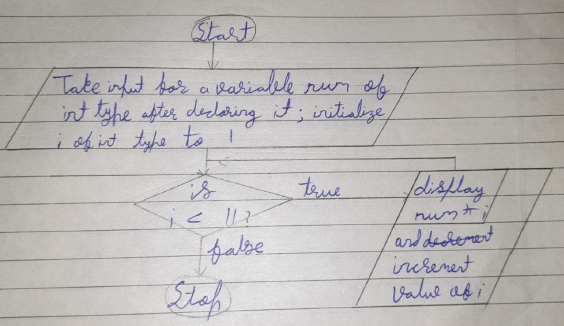 Start
Take input for a variable num of
int type after declaring it; initialize
i of int type to 1
is
i < 11?
true
false
Stop
display
num * i
and decrement
increment
value of i